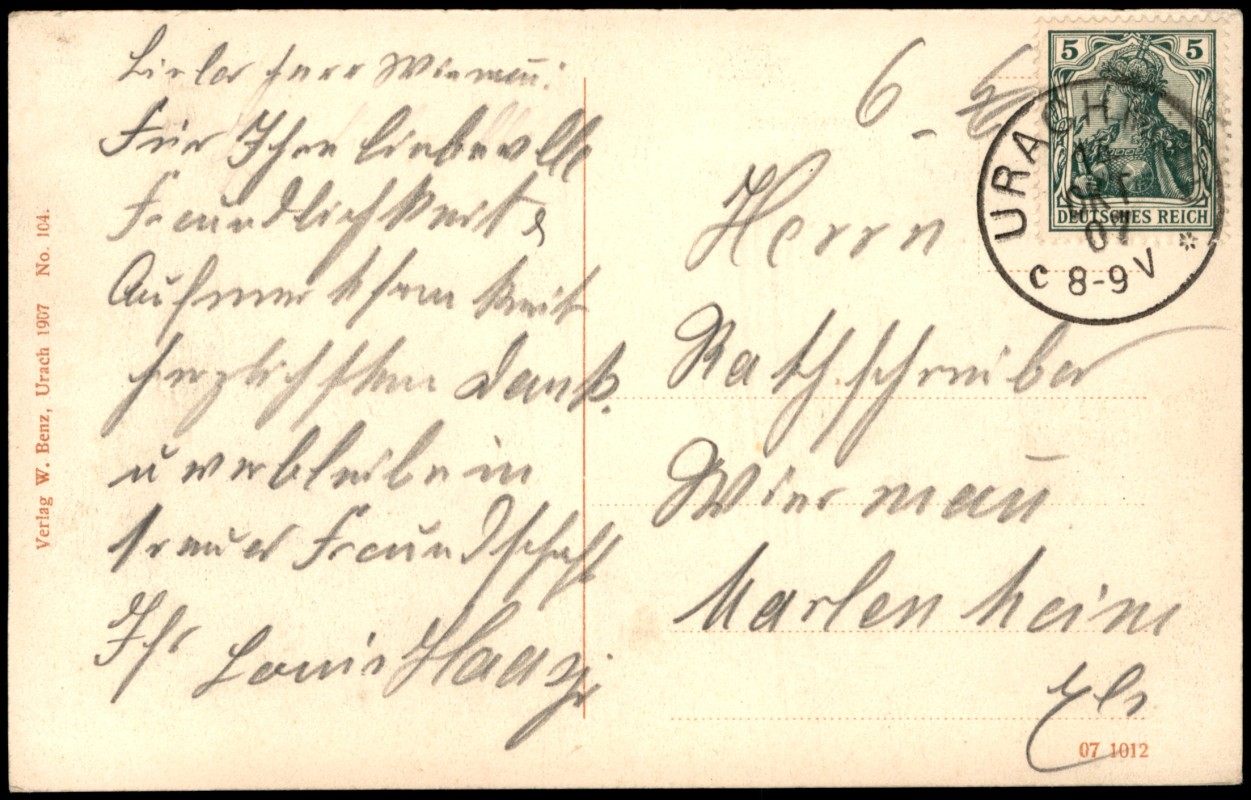 Lieber Herr Wiemañ:
Für Ihre liebevolle
Freundlichkeit &
Aufmerksamkeit
herzlichsten Dank.
u verbleibe in
treuer Freundschaft
Ihr Louis
Herrn
Rathschreiber
Wiermañ
Marlenheim
Els
6
5 5
DEUTSCHES REICH
URACH
14
OKT
07
C 8-9 V *
Verlag W. Benz, Urach 1907 No. 104.
07 1012